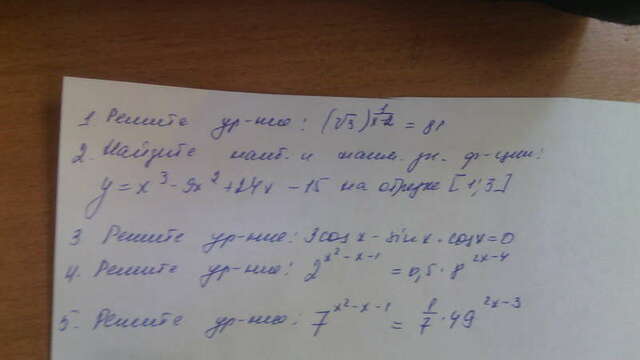 1. Решите ур-ние: (√3)^(1/(x-2)) = 81
2. Найдите наиб. и наим. зн. ф-ции:
y = x³ - 9x² + 24x - 15 на отрезке [1; 3]
3 Решите ур-ние: 3cosx - sinx · cosx = 0
4. Решите ур-ние: 2^(x²-x-1) = 0,5 · 8^(2x-4)
5. Решите ур-ние: 7^(x²-x-1) = 1/7 · 49^(2x-3)